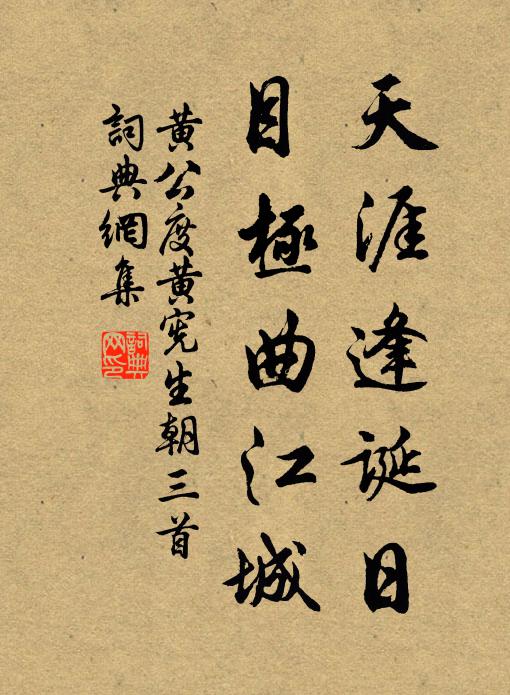 天涯逢誕日
目極曲江城
黄公度黄宪生朝三首
詞典網集
詞典网印